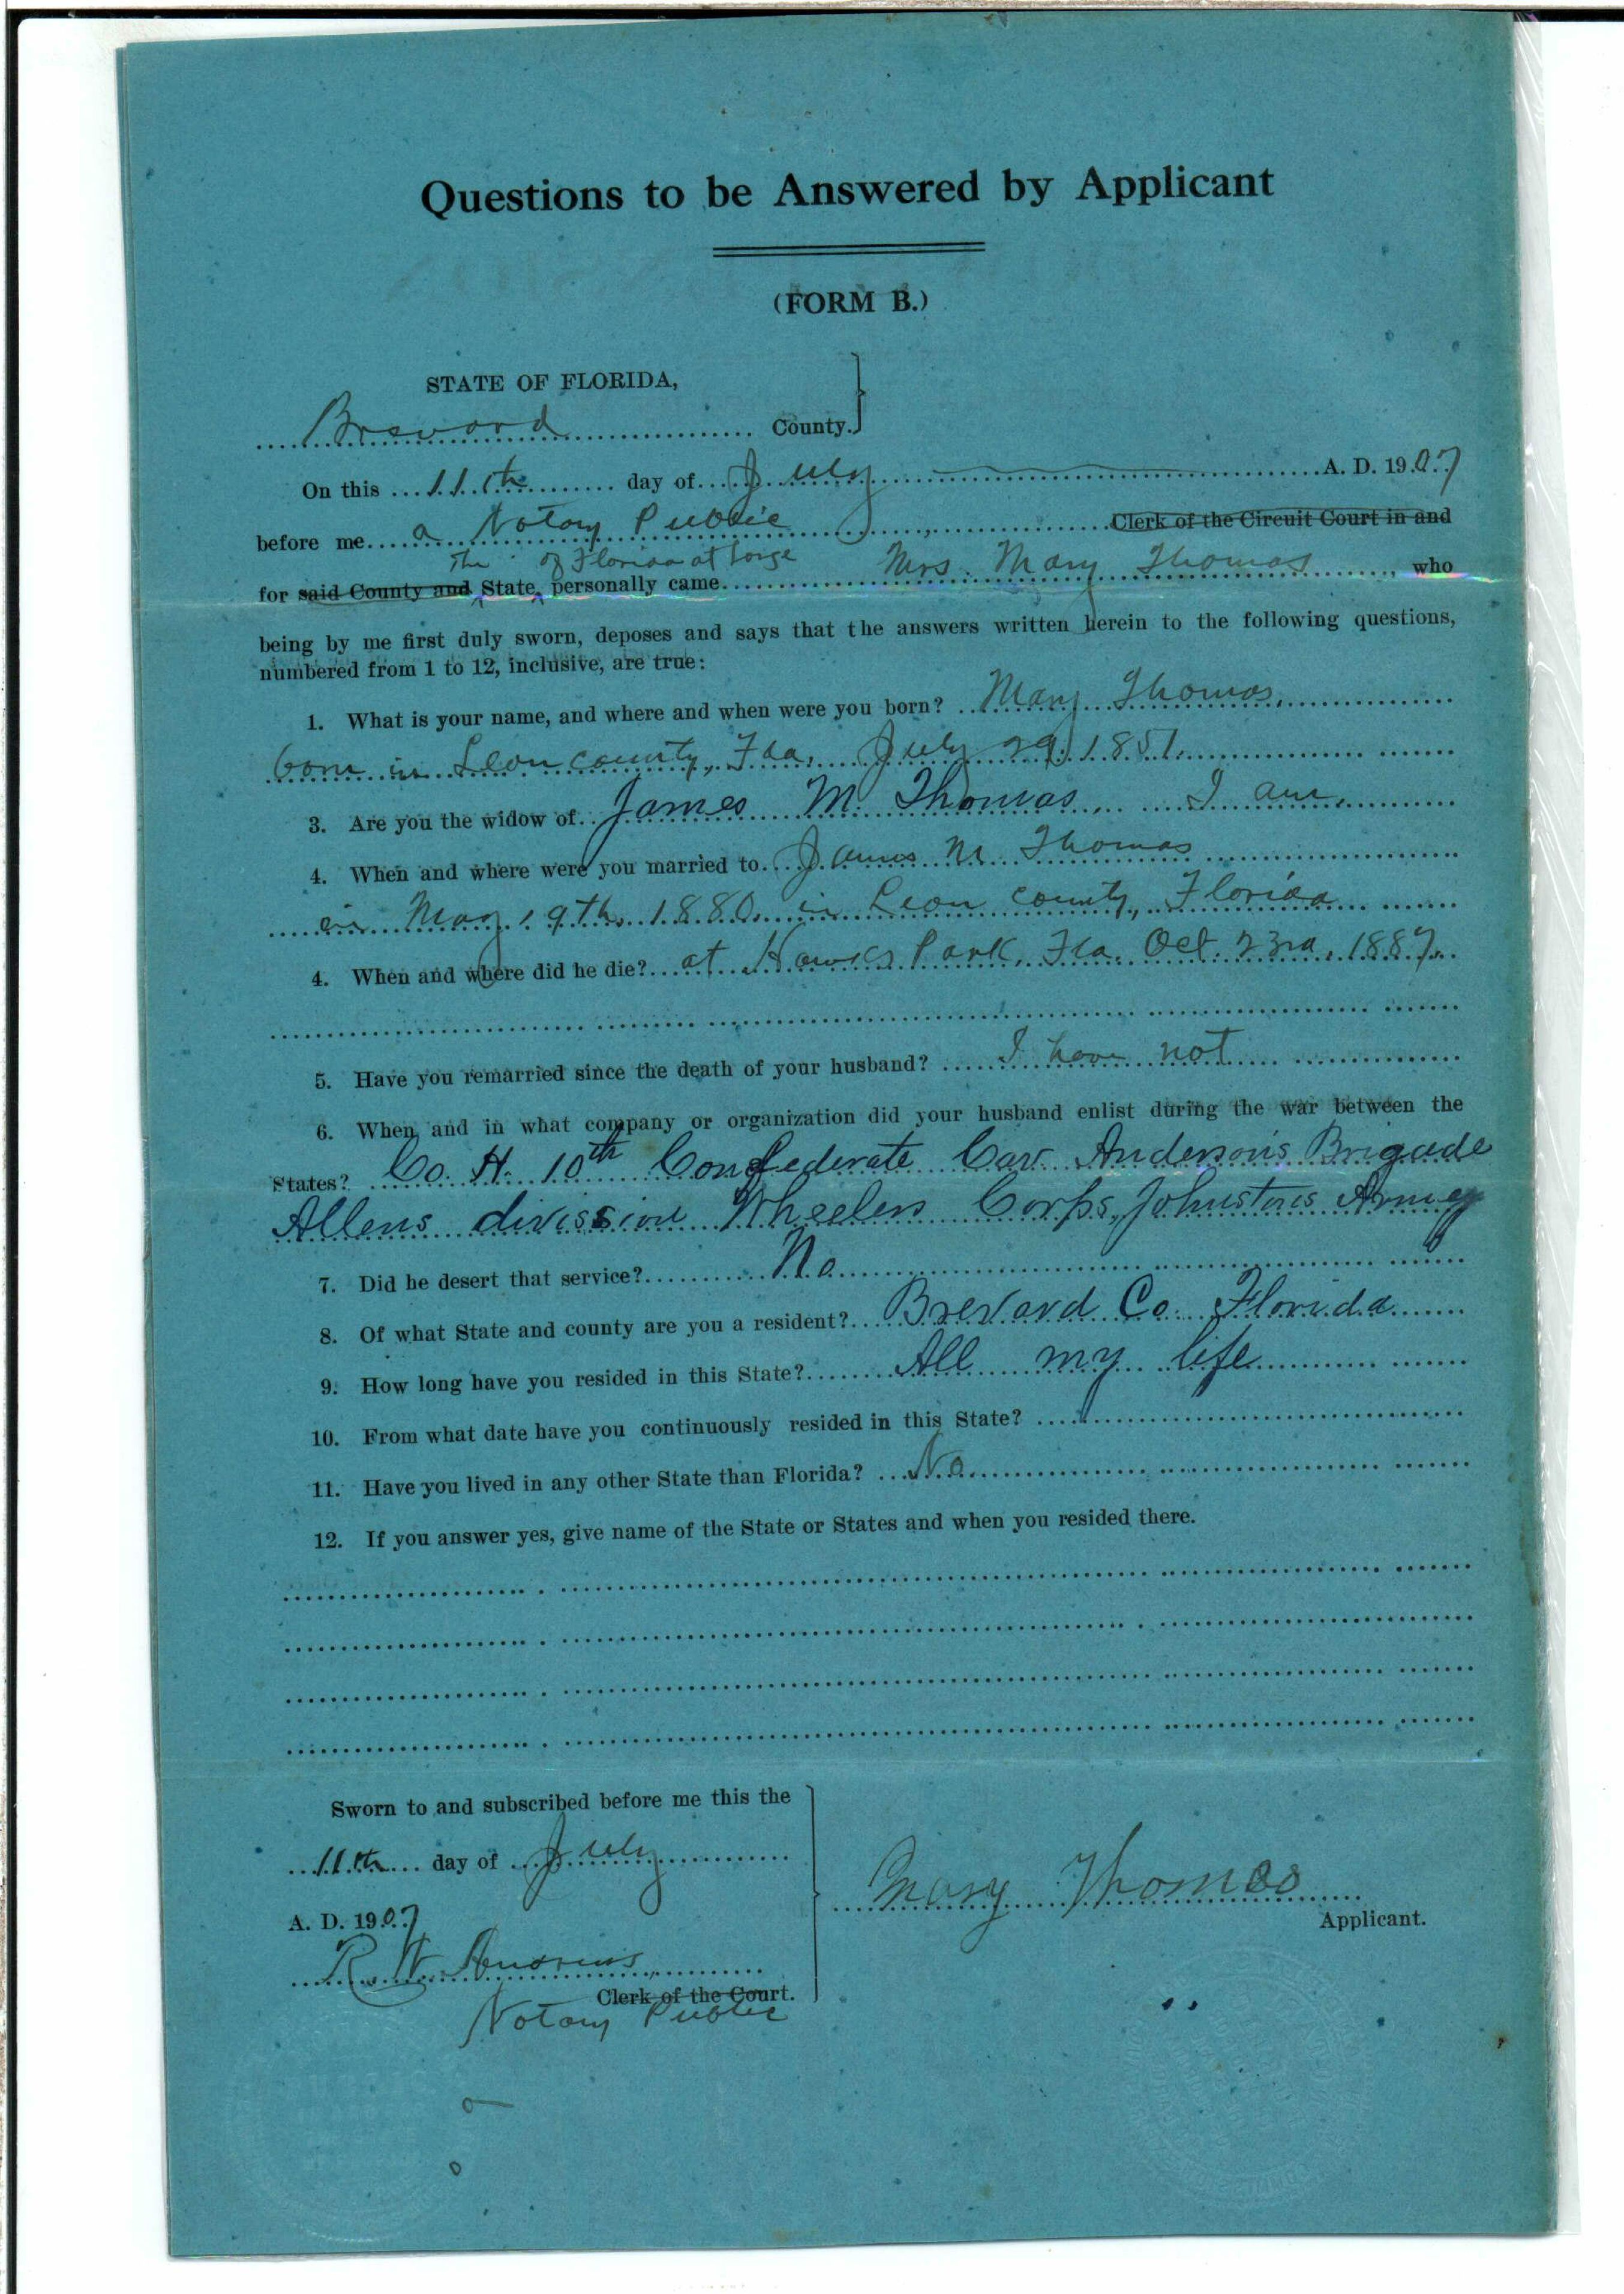 Questions to be Answered by Applicant
(FORM B.)
STATE OF FLORIDA,
Brevard County.
On this 11th day of July A. D. 1907
before me a Notary Public Clerk of the Circuit Court in and
The of Florida at Large
for said County and State, personally came Mrs. Mary Thomas, who
being by me first duly sworn, deposes and says that the answers written herein to the following questions,
numbered from 1 to 12, inclusive, are true:
1. What is your name, and where and when were you born? Mary Thomas,
born in Leon county, Fla, July 29, 1851.
3. Are you the widow of James M. Thomas, I am.
4. When and where were you married to James M Thomas
in May 19th, 1880, in Leon county, Florida
4. When and where did he die? at Hawks Park, Fla. Oct. 23rd, 1887.
5. Have you remarried since the death of your husband? I have not
6. When and in what company or organization did your husband enlist during the war between the
States? Co. H. 10th Confederate Cav Anderson's Brigade
Allens division Wheelers Corps, Johnstons Army
7. Did he desert that service? No
8. Of what State and county are you a resident? Brevard Co. Florida
9. How long have you resided in this State? All my life
10. From what date have you continuously resided in this State?
11. Have you lived in any other State than Florida? No
12. If you answer yes, give name of the State or States and when you resided there.
Sworn to and subscribed before me this the
11th day of July
A. D. 1907
Mary Thomas
Applicant.
R. W. Andrews,
Clerk of the Court.
Notary Public